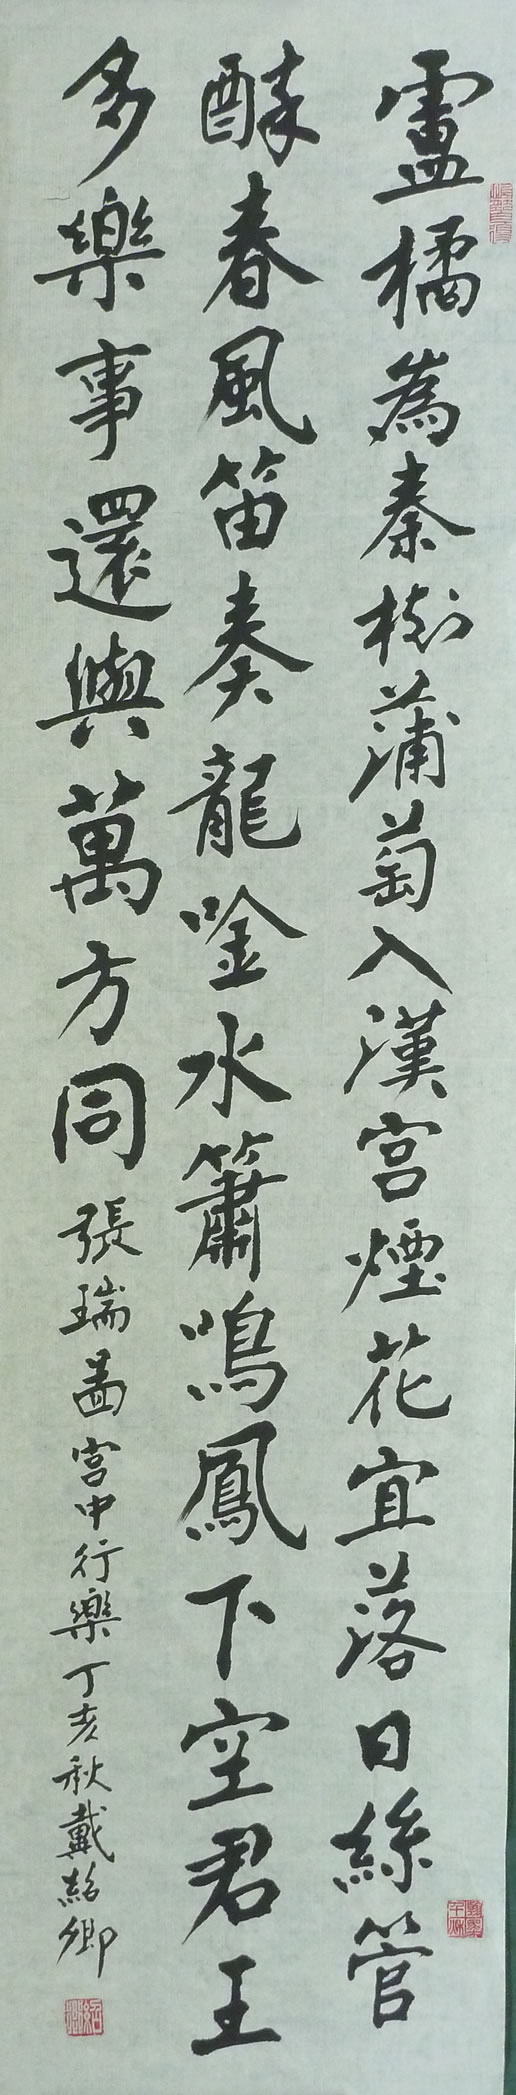 盧橘為秦樹蒲萄入漢宮煙花宜落日絲管
醉春風笛奏龍唫水簫鳴鳳下空君王
多樂事還與萬方同張瑞圖宮中行樂丁亥秋戴紹卿